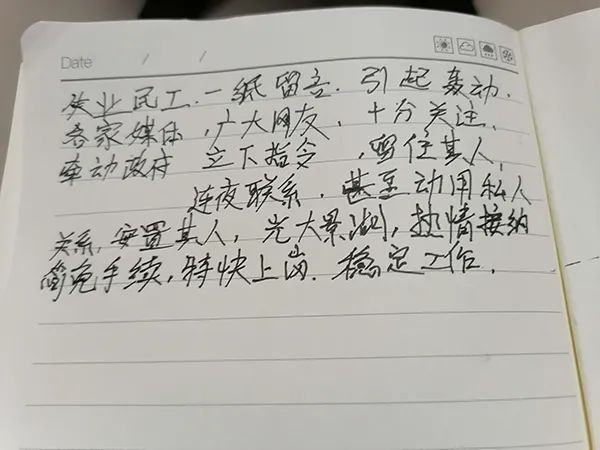 Date / /
失业民工.一纸留言.引起轰动.
各家媒体,广大网友,十分关注.
牵动政府 立下指令 ,留住其人,
连夜联系,甚至动用私人
关系,安置其人,光大景湖,热情接纳
简免手续,特快上岗.稳定工作.